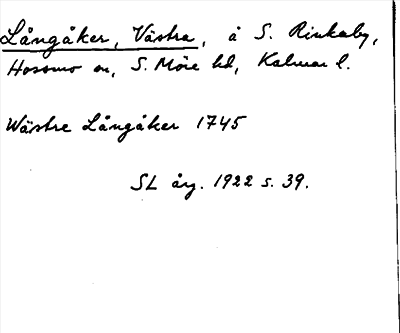 Långåker, Västra, å S. Rinkaby,
Hossmo sn, S. Möre hd, Kalmar l.
Wästre Långåker 1745
SL årg. 1922 s. 39.